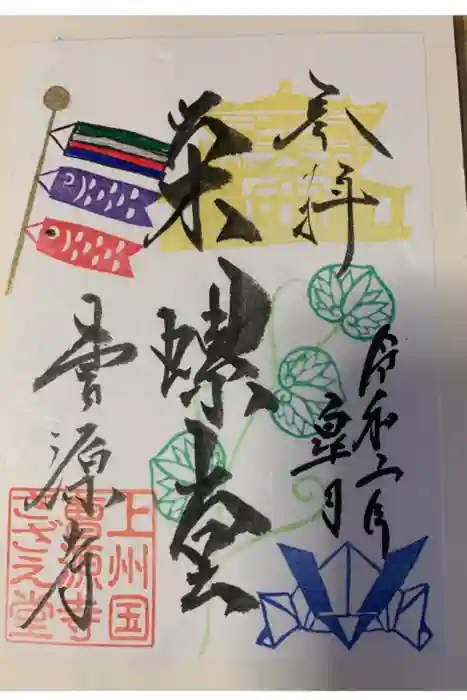 参拝
令和二年
皐月
栄螺堂
曹源寺
上州国
曹源寺
さざえ堂